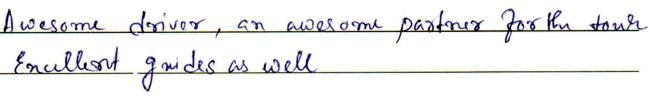 Awesome driver, an awesome partner for the tour
Excellent guides as well